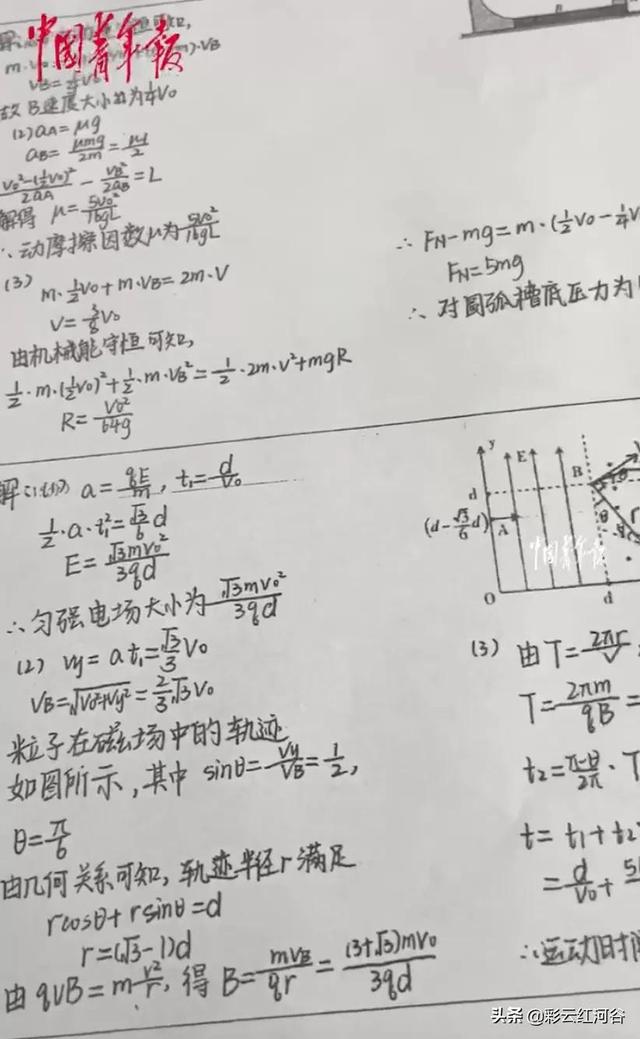 中国青年报
故B速度大小为¼v₀
(2) aA=μg
aB=μmg/2m=μg/2
(v₀²-(½v₀)²)/2aA - vB²/2aB=L
解得 μ=5v₀²/16gL
∴动摩擦因数μ为5v₀²/16gL
(3) m·½v₀+m·vB=2m·v
v=⅜v₀
由机械能守恒可知,
½·m·(½v₀)²+½·m·vB²=½·2m·v²+mgR
R=v₀²/64g
∴ FN-mg=m·(½v₀-¼v
FN=5mg
∴ 对圆弧槽底压力为
解:(1) a=qE/m, t₁=d/v₀
½·a·t₁²=√3/6 d
E=√3mv₀²/3qd
∴匀强电场大小为√3mv₀²/3qd
(2) vy=at₁=√3/3 v₀
vB=√(v₀²+vy²)=2/3√3v₀
粒子在磁场中的轨迹
如图所示,其中 sinθ=vy/vB=1/2,
θ=π/6
由几何关系可知,轨迹半径r满足
rcosθ+rsinθ=d
r=(√3-1)d
由 qvB=m v²/r, 得 B=mvB/qr=(3+√3)mv₀/3qd
y
E
B
d
(d-√3/6 d)
A
中国青年报
O
d
(3) 由T=2πr/v
T=2πm/qB=
t₂=π-θ/2π·T
t=t₁+t₂
=d/v₀+
∴运动时间
头条 @彩云红河谷